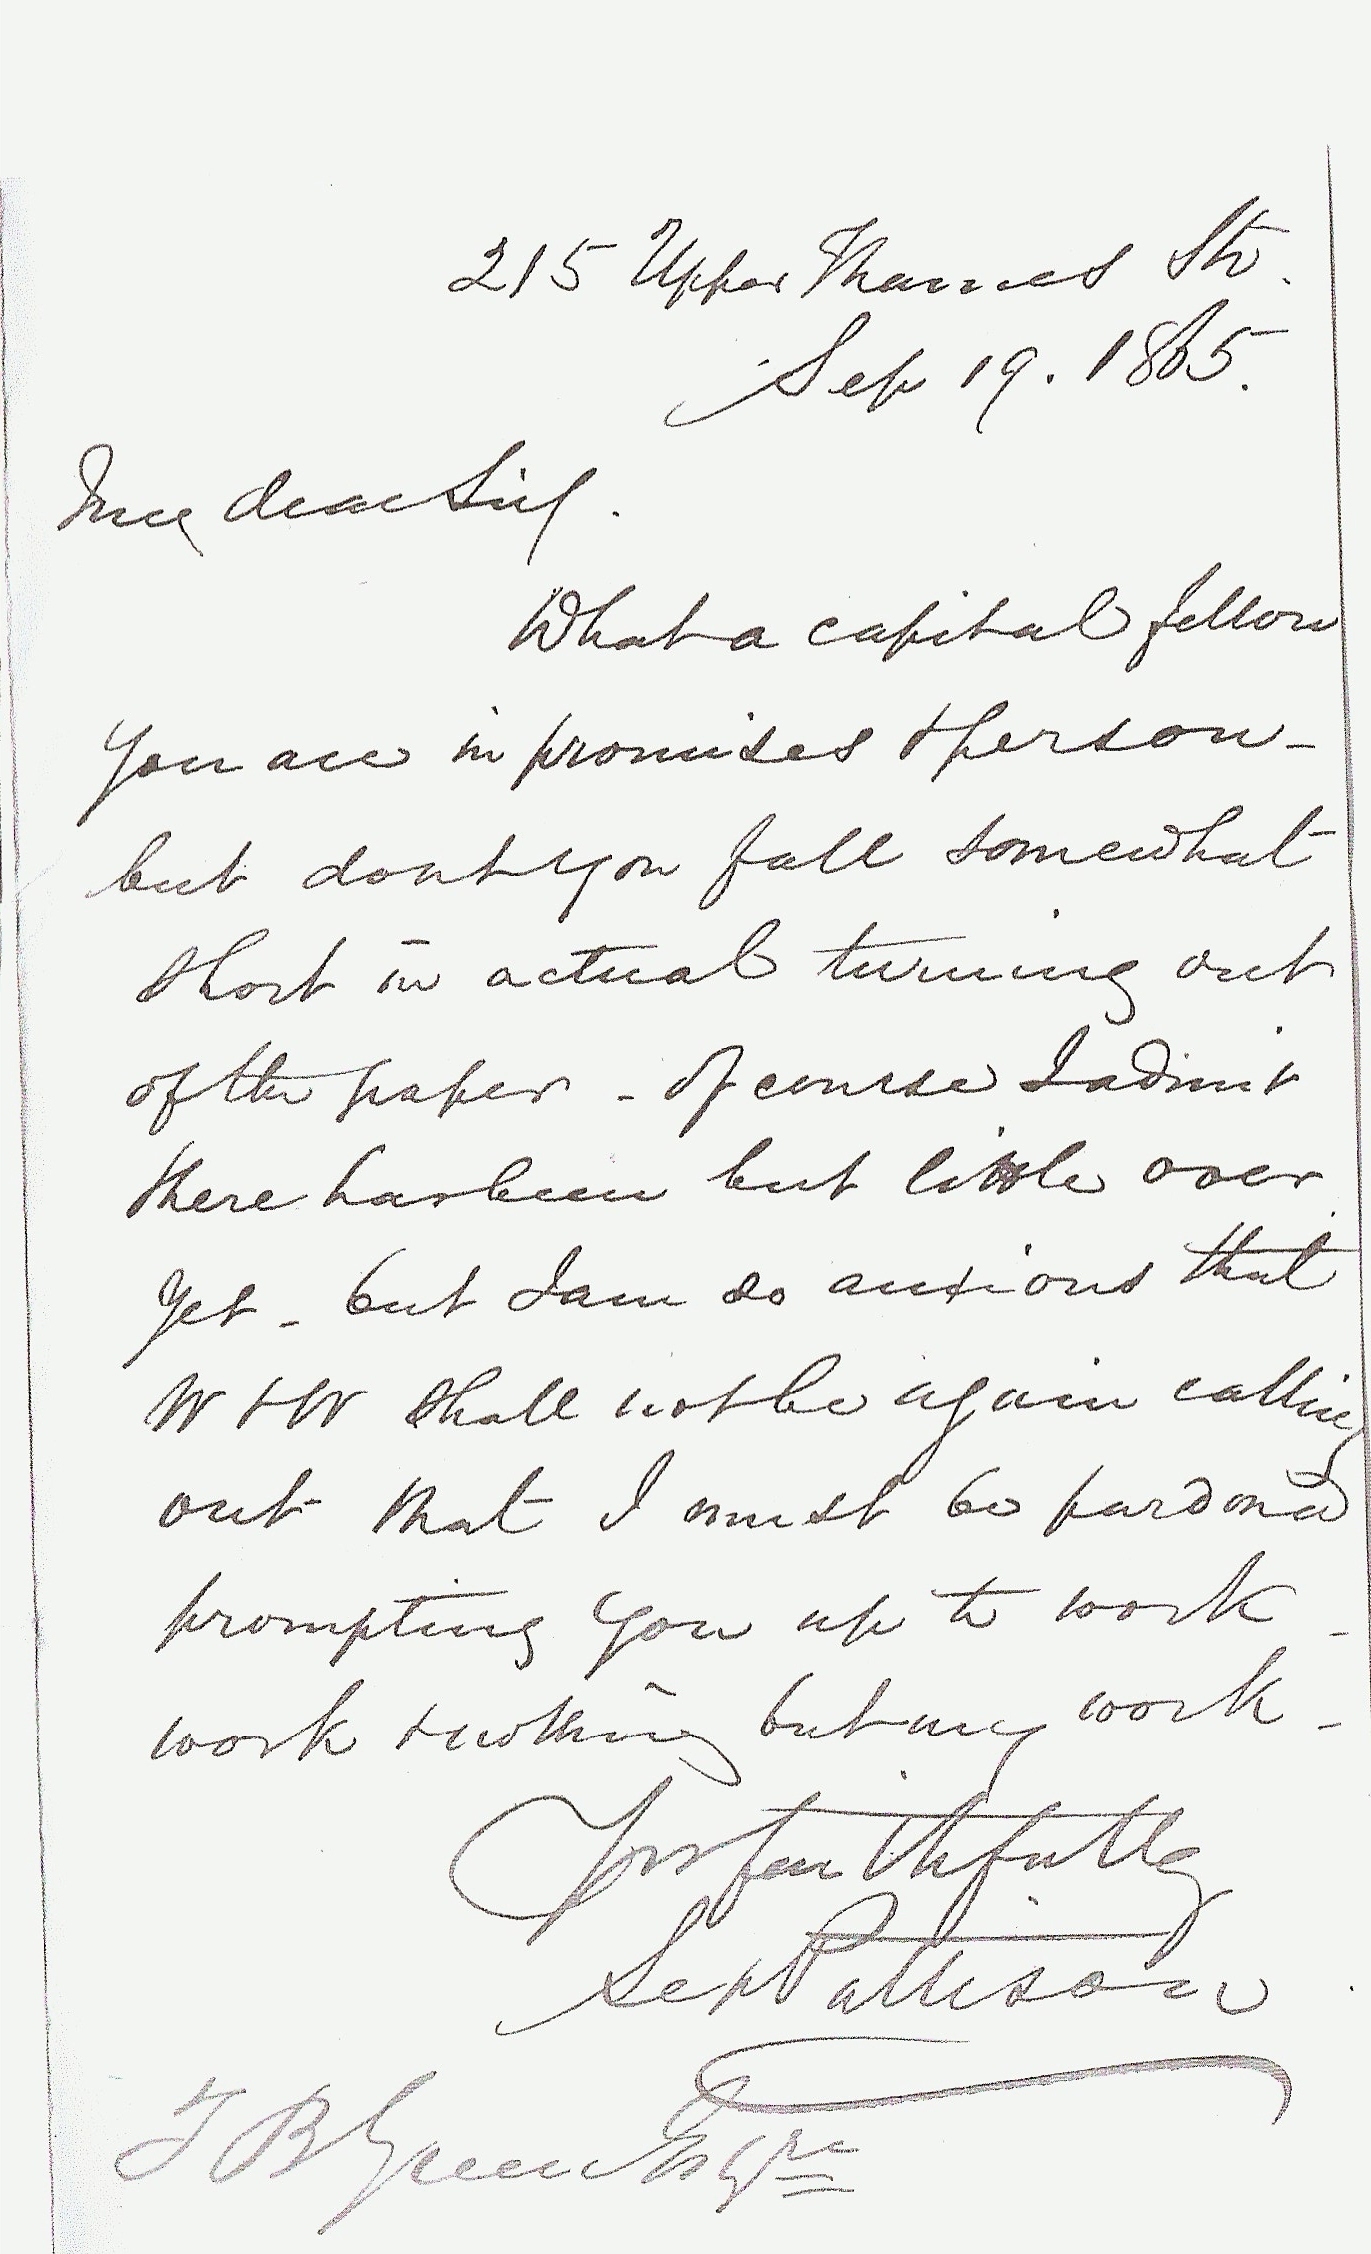 215 Upper Thames Str.
Sep 19. 1865.
My dear Sir.
What a capital fellow
you are in promises & person -
but dont you fall somewhat
short in actual turning out
of the paper - Of course I admit
there has been but little over
yet - but I am so anxious that
W & W shall not be again calling
out that I must be pardoned
prompting you up to work -
work & nothing but my work -
Yrs faithfully
Sep Pattison
T B Green Esqre